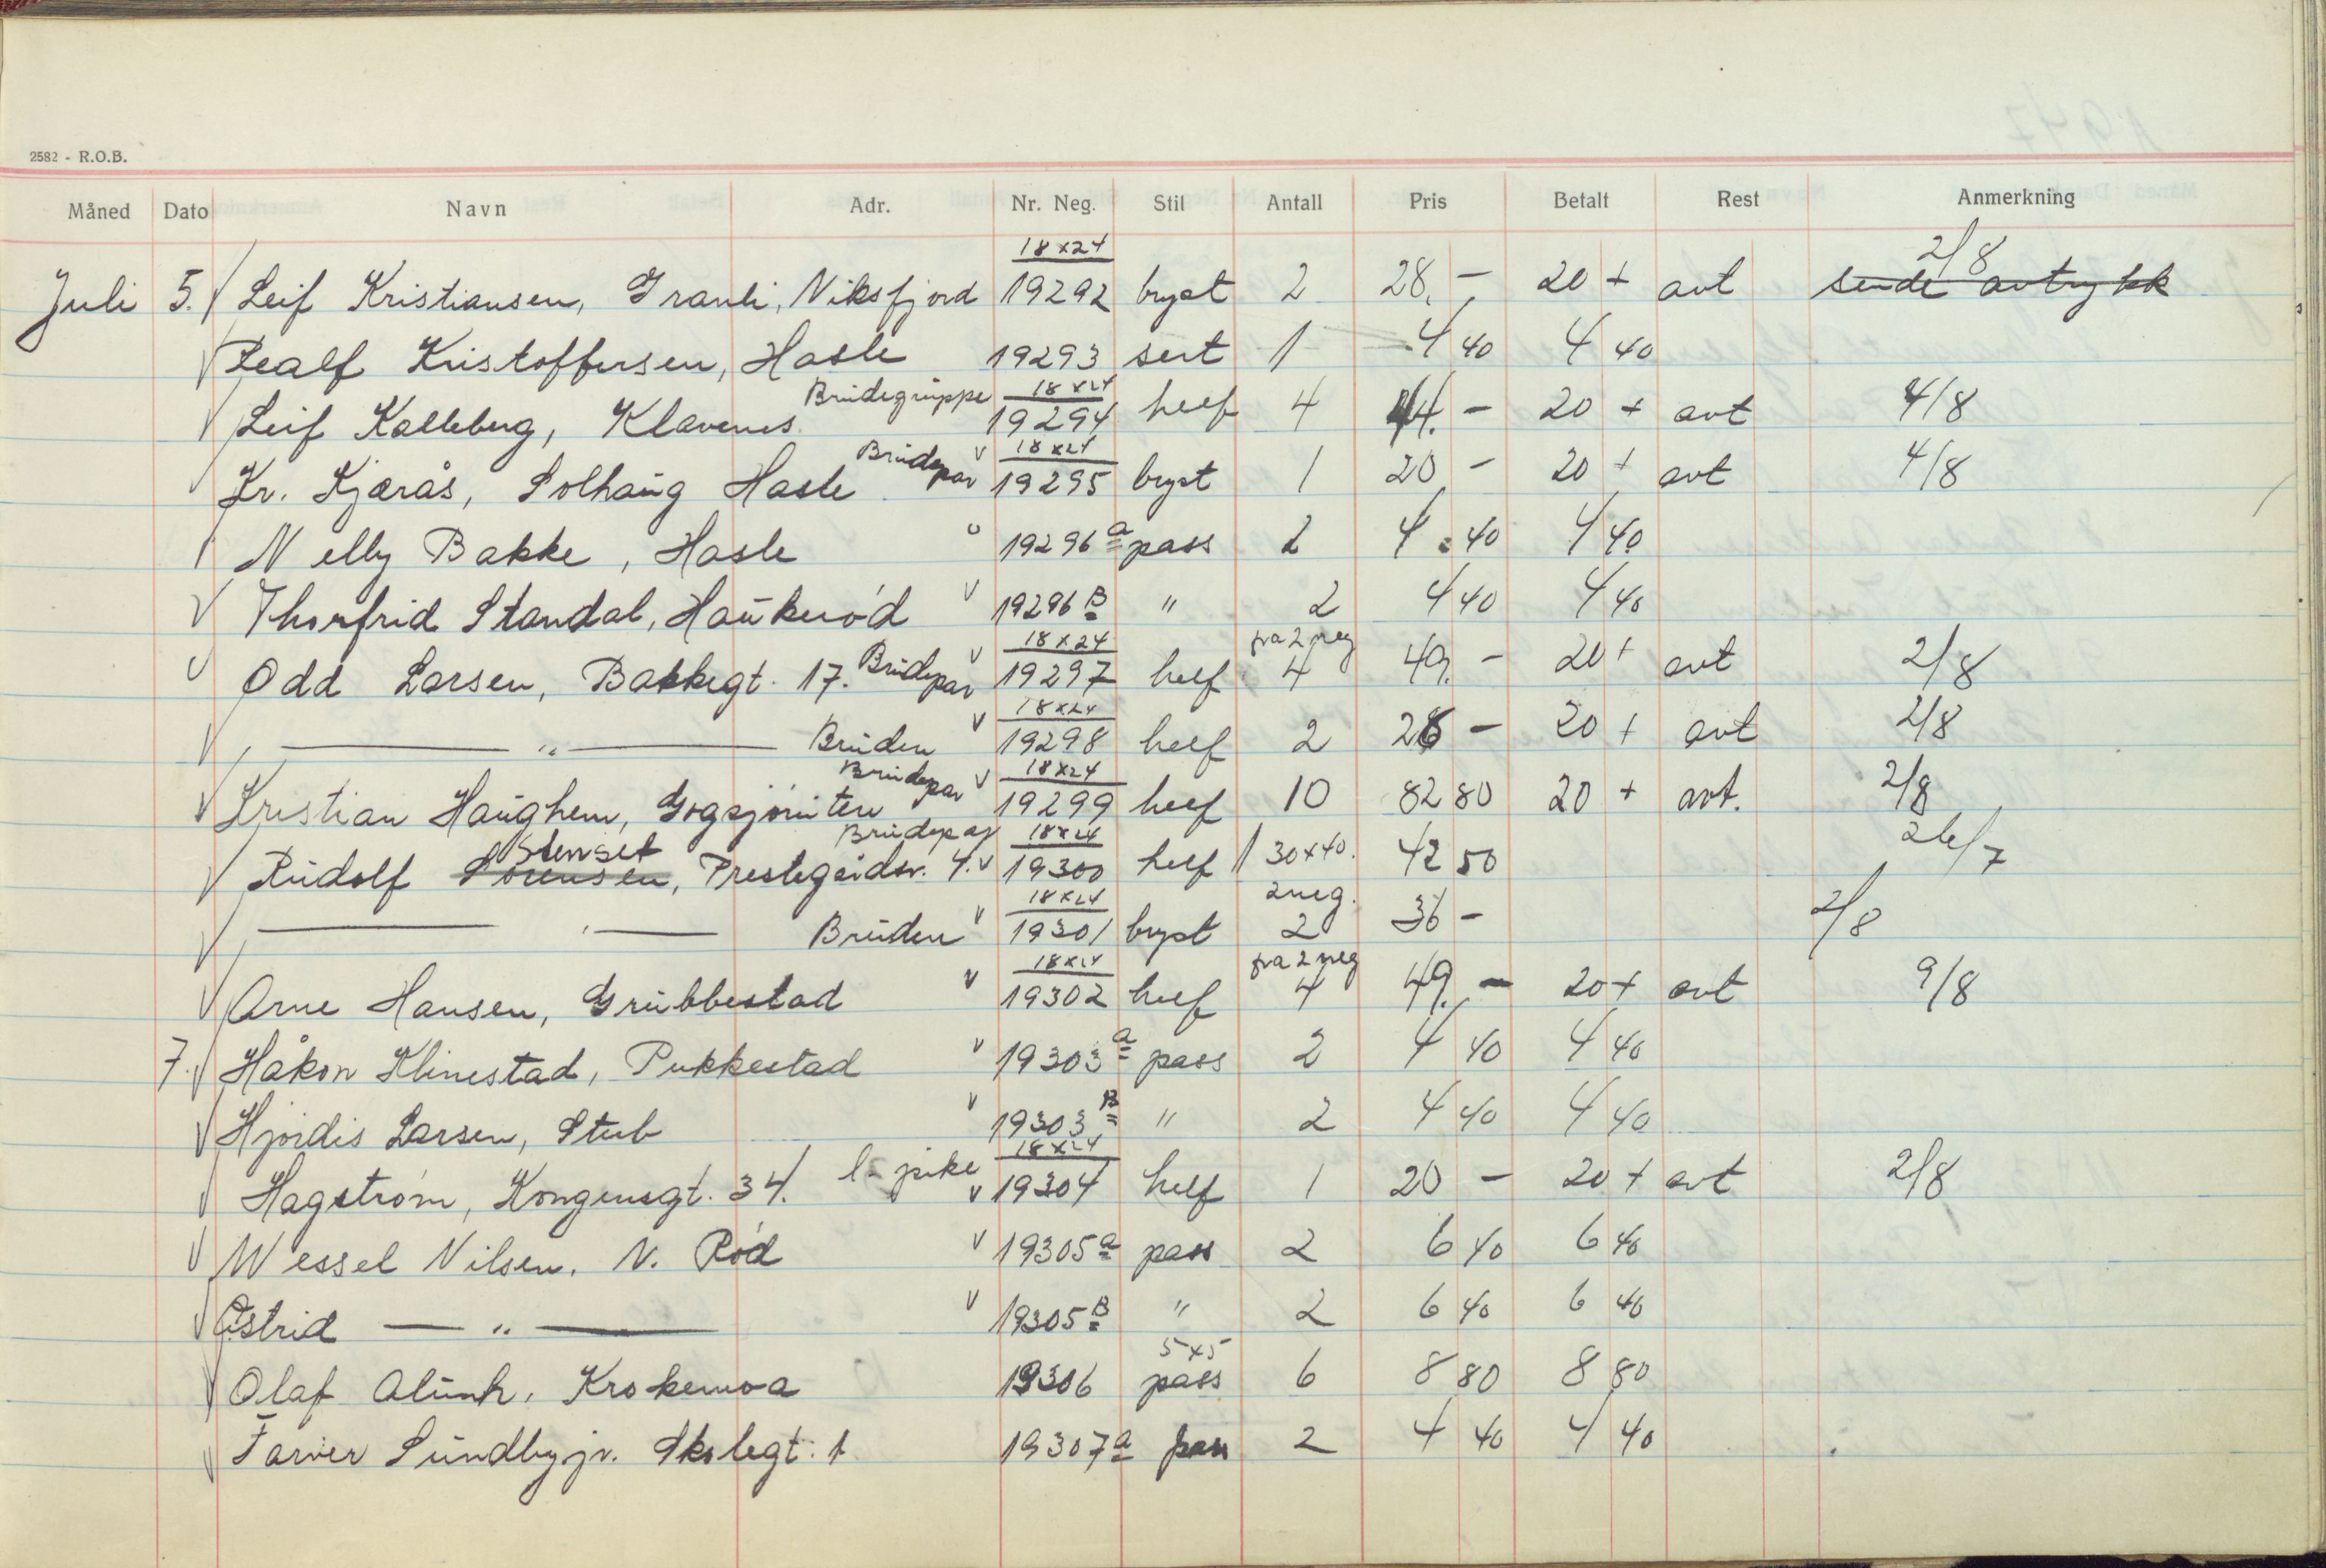 2582 - R.O.B.
Måned Dato Navn Adr. Nr. Neg. Stil Antall Pris Betalt Rest Anmerkning
Juli 5. Leif Kristiansen, Granli, Viksfjord 18x24 19292 bryst 2 28.- 20 + avt 2/8 sende avtrykk
Realf Kristoffersen, Hasle 19293 sert 1 4 40 4 40
Leif Kalleberg, Klavenes Brudegruppe 18x24 19294 helf 4 44.- 20 + avt 4/8
Kr. Kjærås, Solhaug Hasle Brudepar 18x24 19295 bryst 1 20 - 20 + avt 4/8
Nelly Bakke, Hasle 19296 a pass 2 4.40 4 40
Thorfrid Standal, Haukerød 19296 B " 2 4 40 4 40
Odd Larsen, Bakkegt. 17. Brudepar 18x24 19297 helf fra 2 neg 4 49.- 20 + avt 2/8
— " — Bruden 18x24 19298 helf 2 28 - 20 + avt 2/8
Kristian Haughem, Gogsjøruten Brudepar 18x24 19299 helf 10 82 80 20 + avt. 2/8
Rudolf Sørensen Stenset, Prestegårdsv. 4. Brudepar 18x24 19300 helf 1 30x40. 42 50 26/7
— " — Bruden 18x24 19301 bryst 2 neg. 2 36 - 2/8
Arne Hansen, Grubbestad 18x24 19302 helf fra 2 neg 4 49.- 20 + avt 9/8
7. Håkon Klinestad, Pukkestad 19303 a pass 2 4 40 4 40
Hjørdis Larsen, Stub 19303 B " 2 4 40 4 40
Hagstrøm, Kongensgt. 34. l. pike 18x24 19304 helf 1 20 - 20 + avt 2/8
Wessel Nilsen, N. Rød 19305 a pass 2 6 40 6 40
Astrid — " — 19305 B " 2 6 40 6 40
Olaf Alunh, Krokemoa 19306 5x5 pass 6 8 80 8 80
Farver Sundby jr. Skolegt: 1 19307 a pass 2 4 40 4 40